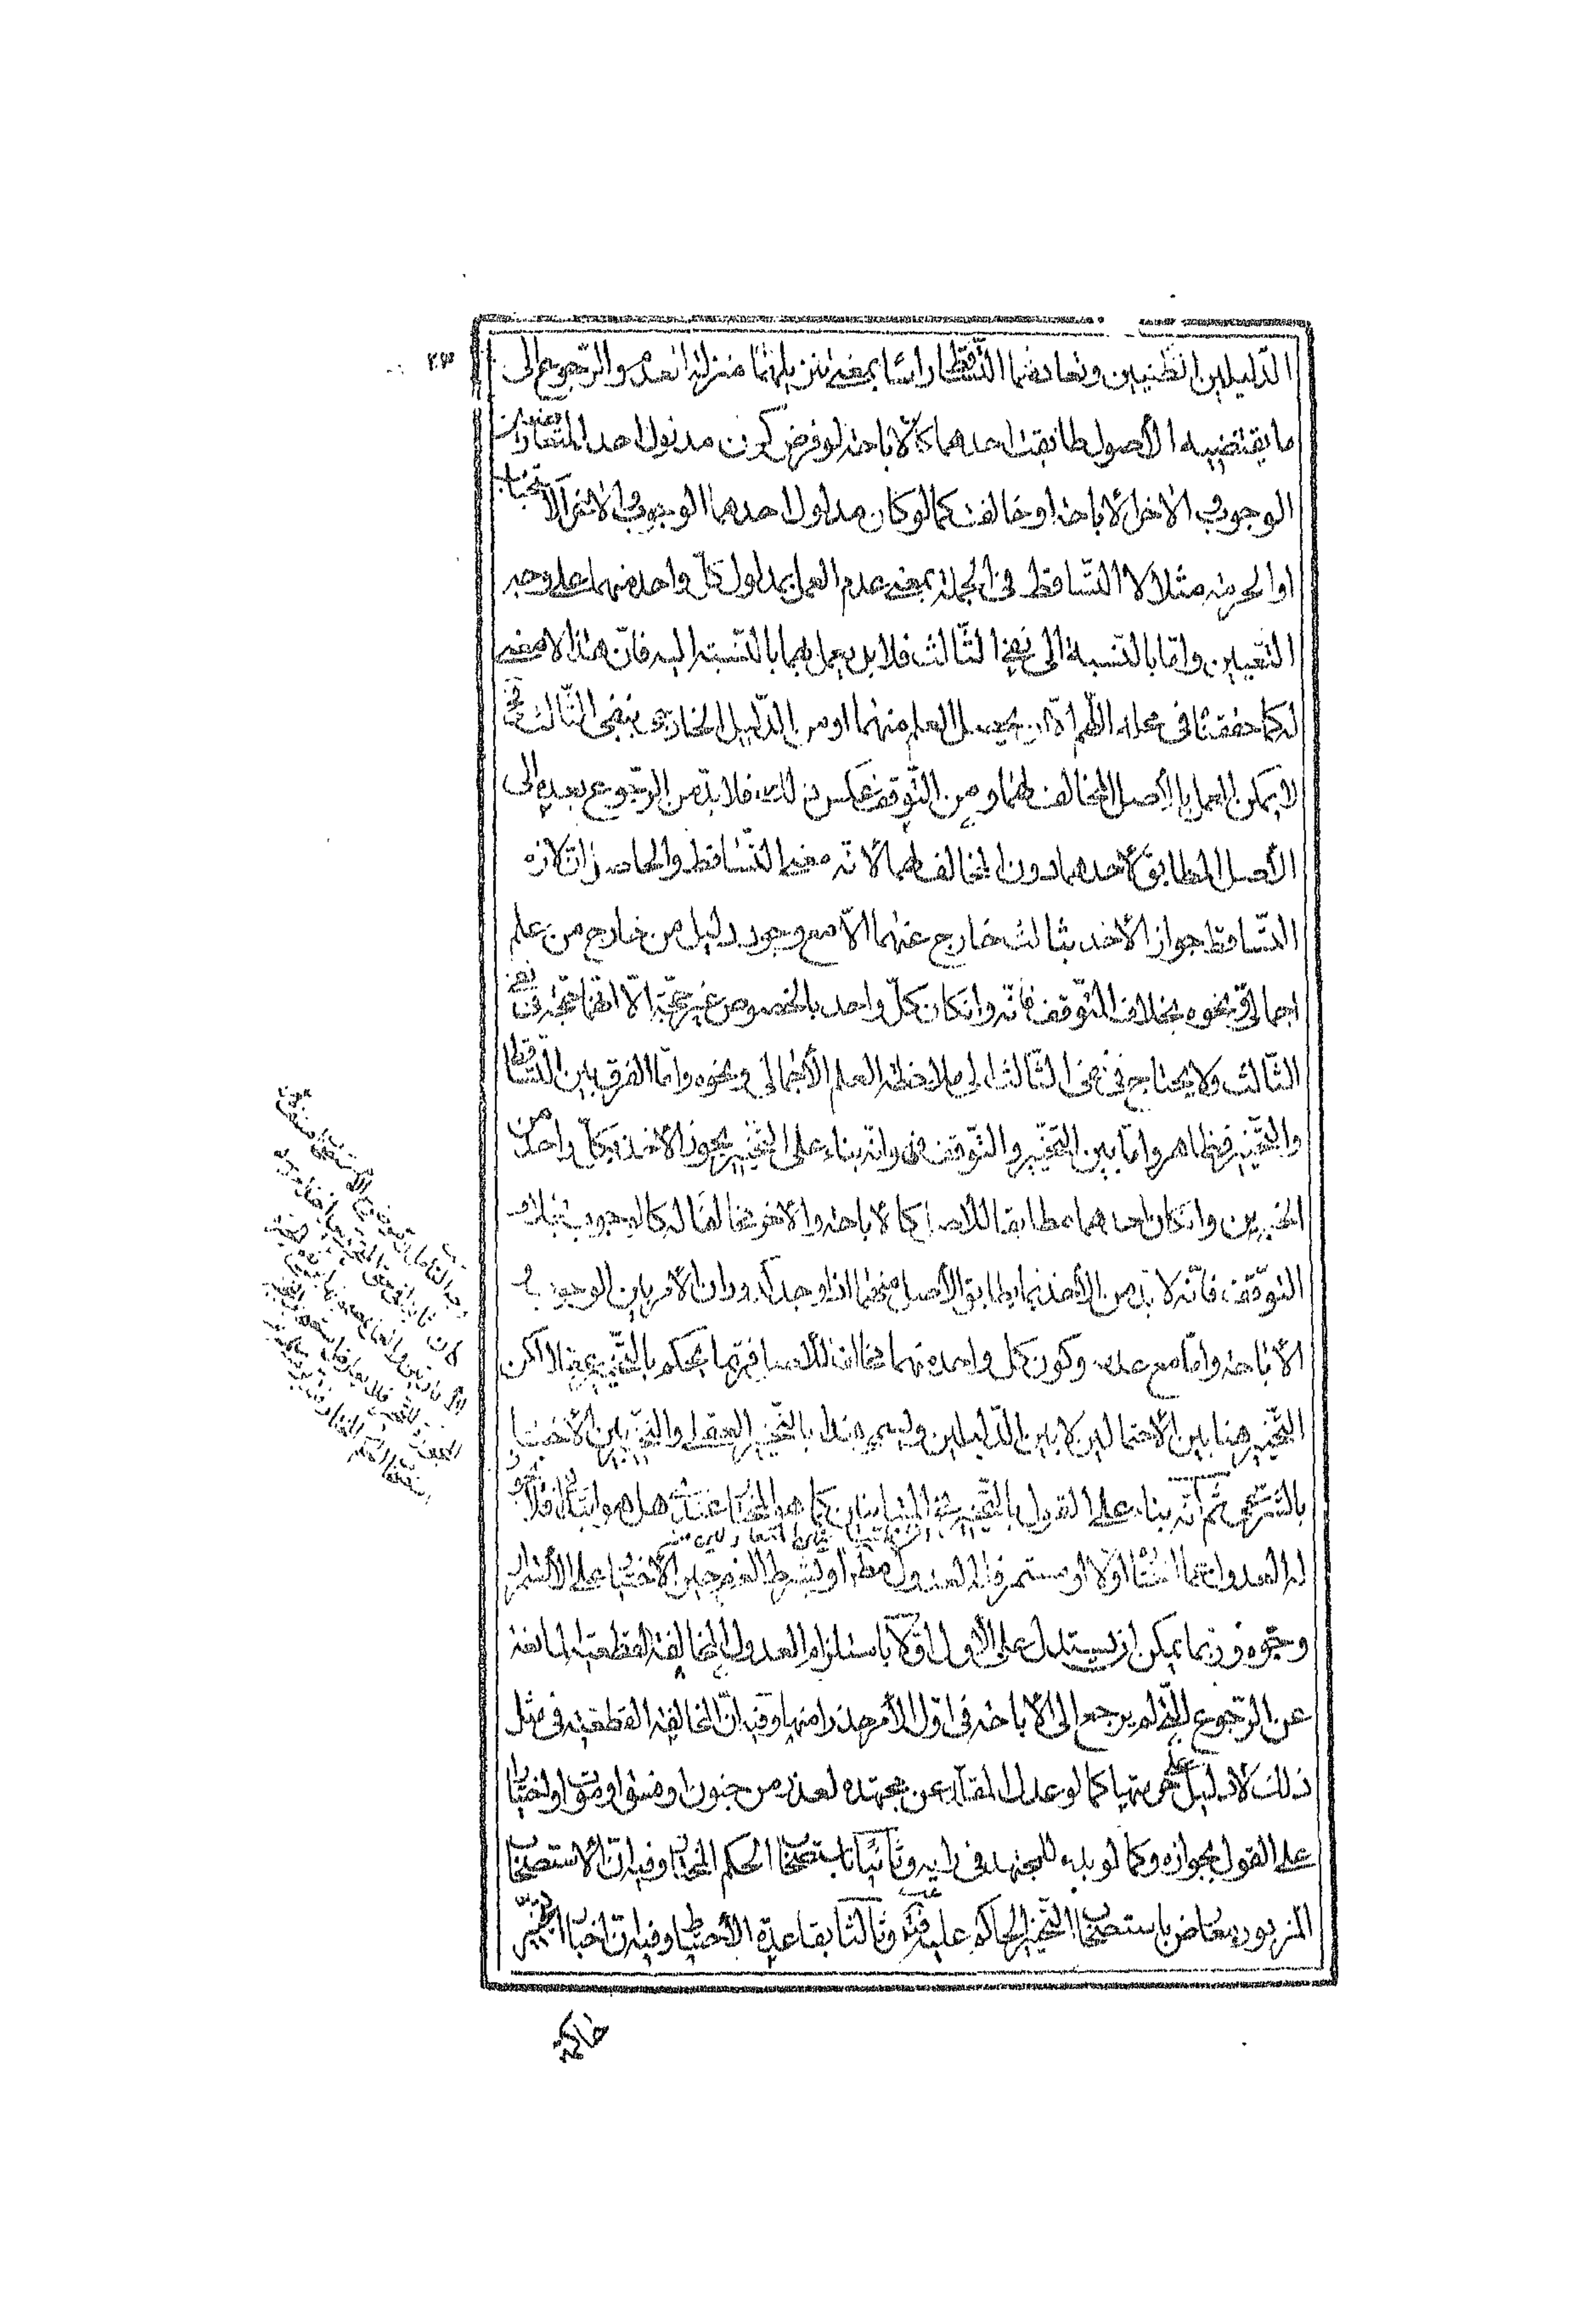 الدّليلين الظّنيين وتعارضهما التّساقط راسًا بمعنى تنزيلهما منزلة العدم والرّجوع الى
ما يقتضيه الأصول طابقت احدهما كالاباحة لو فرض كون مدلول احد المتعارضين
الوجوب وفي الاخر الاباحة او خالفت كما لو كان مدلول احدهما الوجوب وفي الاخر الاستحباب
او الحرمة مثلا لا التّساقط في الجملة بمعنى عدم العمل بمدلول كلّ واحد منهما على وجه
التّعيين وامّا بالنّسبة الى نفي الثّالث فلا بل يعمل بهما بالنّسبة اليه فانّ هذا لا معنى
له كما حققنا في محله اللّهم الّا ان يحصل العلم منهما او من الدّليل الخارجى بنفى الثّالث فح
لا يمكن العمل بالأصل المخالف لهما ومن التّوقف عكس ذلك فلا بدّ من الرّجوع بعده الى
الأصل المطابق لأحدهما دون المخالف لهما لأنّه معنى التّساقط والحاصل ان لازم
التّساقط جواز الأخذ بثالث خارج عنهما الّا مع وجود دليل من خارج من علم
اجمالي ونحوه بخلاف التّوقف فانّه وان كان كلّ واحد بالخصوص غير حجّة الّا انّهما حجّة في نفى
الثّالث ولا يحتاج في نفى الثّالث الى ملاحظة العلم الأجمالى ونحوه وامّا الفرق بين التّساقط
والتّخيير فظاهر وامّا بين التخيّير والتّوقف فهو انّه بناء على التّخيير يجوز الأخذ بكلّ واحد من
الخبرين وان كان احدهما مطابقا للاصل كالاباحة والاخر مخالفا له كالوجوب بخلاف
التّوقّف فانّه لا بدّ من الأخذ بما يطابق الأصل منهما اذا وجد كدوران الأمر بين الوجوب و
الأباحة وامّا مع عدمه وكون كل واحد منهما مخالفا للأصل فربّما يحكم بالتّخيير عقلا لكن
التّخيير هنا بين الأحتمالين لا بين الدّليلين ويسمى هذا بالتّخيير العقلى والتّخيير بين الأخبار
بالشّرعى ثم انّه بناء على القول بالتّخيير في المتباينان كما هو المختار عندنا هل هو ابتدائى فلا يجوز
له العدول عما اختار اوّلا او مستمر فله العدول مطلقا او بشرط العزم حين الأختيار على الأستمرار
وجوه وربما يمكن ان يستدل على الأول اوّلا باستلزام العدول المخالفة القطعية المانعة
عن الرّجوع للّتى لم يرجع الى الأباحة في اوّل الأمر حذرا منها وفيه انّ المخالفة القطعية في مثل
ذلك لا دليل على حرمتها كما لو عدل المقلّد عن مجتهده لعذر من جنون او فسق او موت او اختيارا
على القول بجوازه وكما لو بدء للمجتهد في رايه وثانيًا باستصحاب الحكم المختار وفيه انّ الأستصحاب
المزبور معارض باستصحاب التّخيير الحاكم عليه وثالثا بقاعدة الأحتياط وفيه ان اخبار التخيير
حاكمة